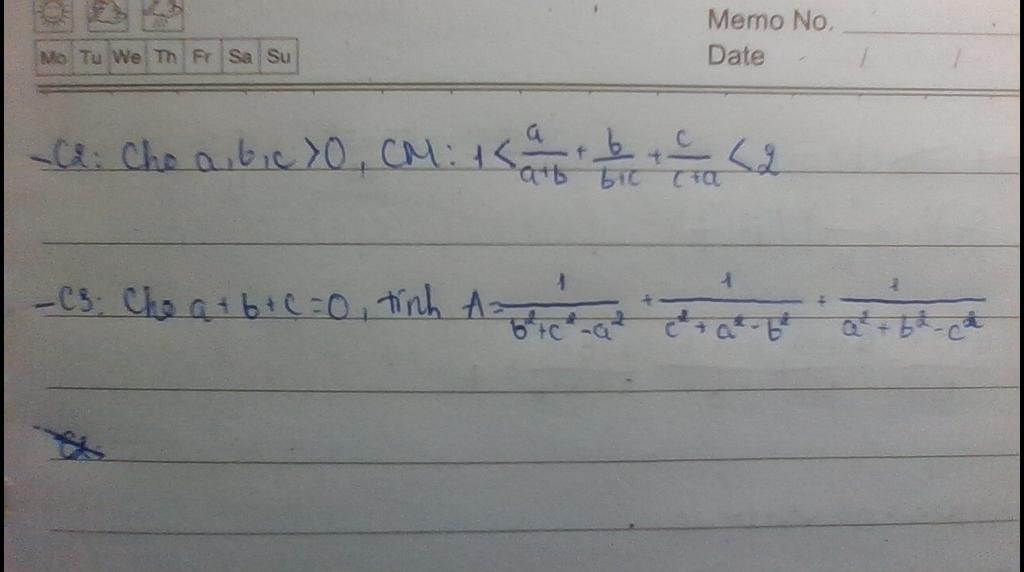 Memo No.
Mo Tu We Th Fr Sa Su
Date / /
-C2: Cho a,b,c >0, CM: 1 < a/(a+b) + b/(b+c) + c/(c+a) < 2
-C3: Cho a+b+c=0, tính A= 1/(b²+c²-a²) + 1/(c²+a²-b²) + 1/(a²+b²-c²)